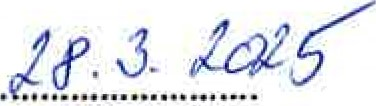 28. 3. 2025